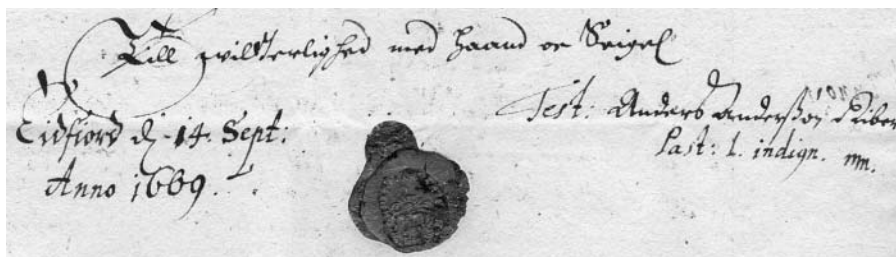 Till witterlighed med haand oc Seigel
Eidfiord d. 14. Sept:
Anno 1669.
Test: Anders Anderßøn Riber
Past: l. indign. mm.